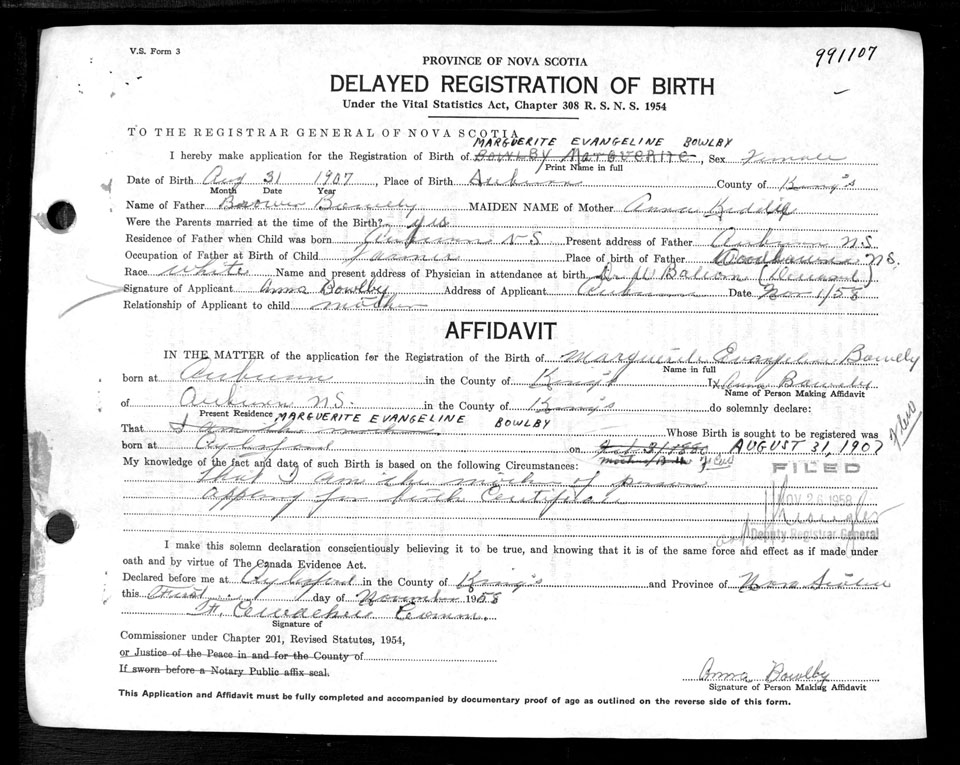 V.S. Form 3
991107
PROVINCE OF NOVA SCOTIA
DELAYED REGISTRATION OF BIRTH
Under the Vital Statistics Act, Chapter 308 R. S. N. S. 1954
TO THE REGISTRAR GENERAL OF NOVA SCOTIA
MARGUERITE EVANGELINE BOWLBY
I hereby make application for the Registration of Birth of BOWLBY MARGUERITE, Sex Female
Print Name in full
Date of Birth Aug 31 1907, Place of Birth Auburn County of King's
Month Date Year
Name of Father Bowlby MAIDEN NAME of Mother Anna
Were the Parents married at the time of the Birth? yes
Residence of Father when Child was born Auburn N S Present address of Father Auburn N.S.
Occupation of Father at Birth of Child Farmer Place of birth of Father N.S.
Race White Name and present address of Physician in attendance at birth Dr
Signature of Applicant Anna Bowlby Address of Applicant Auburn Date Nov 1/58
Relationship of Applicant to child mother
AFFIDAVIT
IN THE MATTER of the application for the Registration of the Birth of Marguerite Bowlby
Name in full
born at Auburn in the County of King's I, Anna Bowlby
Name of Person Making Affidavit
of Auburn N.S. in the County of King's do solemnly declare:
Present Residence MARGUERITE EVANGELINE BOWLBY
That I am the mother Whose Birth is sought to be registered was
born at Aylesford on AUGUST 31, 1907
My knowledge of the fact and date of such Birth is based on the following Circumstances:
FILED
That I am the mother of person
NOV 26 1958
applying for birth Certificate
Deputy Registrar General
I make this solemn declaration conscientiously believing it to be true, and knowing that it is of the same force and effect as if made under
oath and by virtue of The Canada Evidence Act.
Declared before me at Aylesford in the County of King's and Province of Nova Scotia
this First day of November 1958
Signature of
Commissioner under Chapter 201, Revised Statutes, 1954,
or Justice of the Peace in and for the County of
If sworn before a Notary Public affix seal.
Anna Bowlby
Signature of Person Making Affidavit
This Application and Affidavit must be fully completed and accompanied by documentary proof of age as outlined on the reverse side of this form.